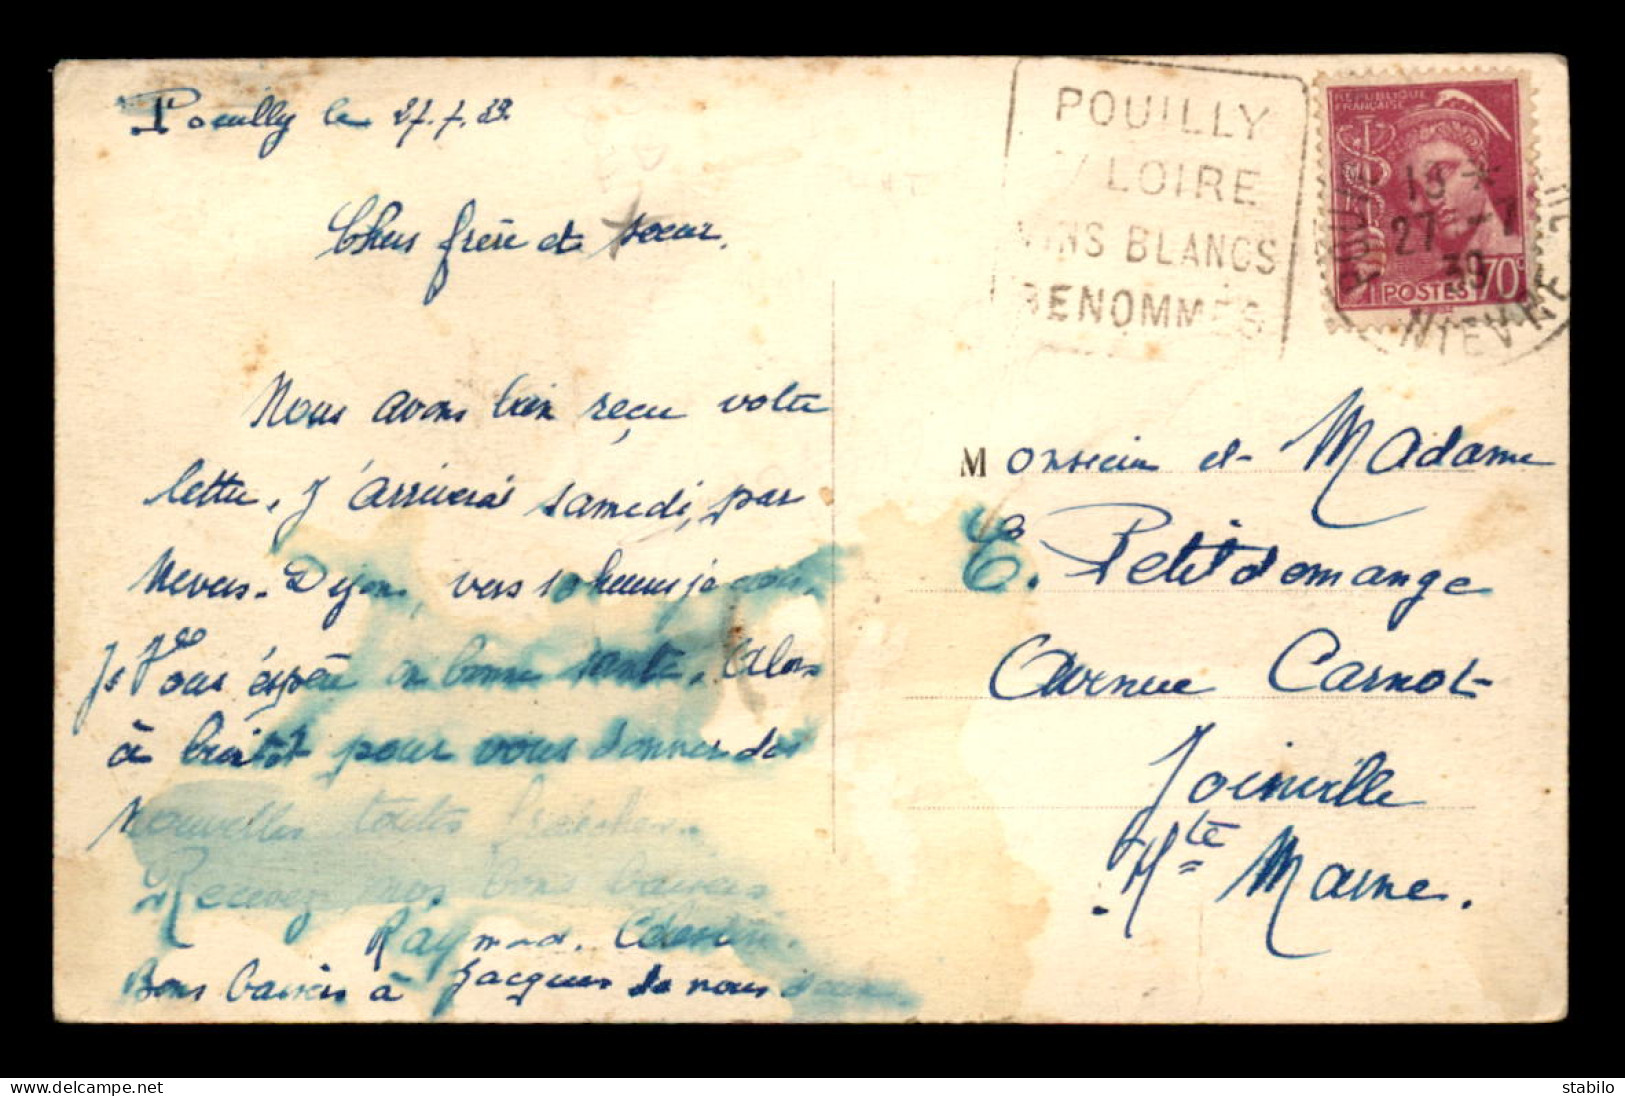 Pouilly le 27.7.39.
Chers frère et sœur.
Nous avons bien reçu votre
lettre, j'arriverai samedi, par
Nevers-Dijon, vers 10 heures je
Je Vous éspère en bonne santé. Alors
à bientôt pour vous donner des
nouvelles toutes fraiches.
Recevez mes bons baisers
Raymond.
Bons baisers à Jacques de nous deux
POUILLY
S/ LOIRE
VINS BLANCS
RENOMMÉS
REPUBLIQUE
FRANÇAISE
POSTES 70c
27 -7
39
NIEVRE
Monsieur et Madame
E. Petitdemange
Avenue Carnot
Joinville
Hte Marne.
stabilo